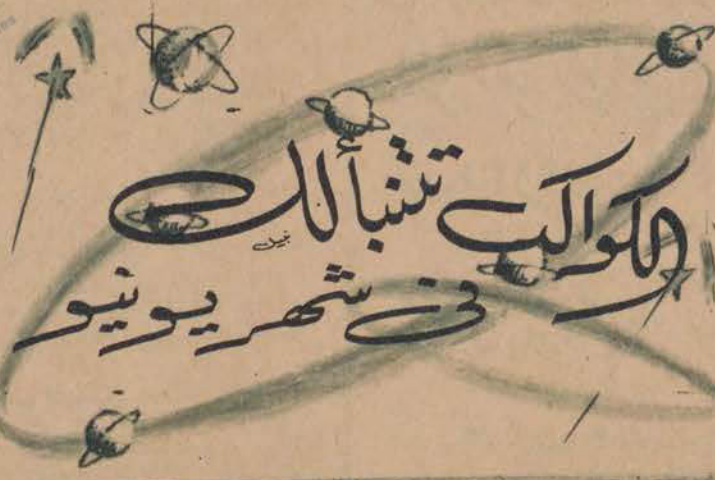 الكواكب تتنبأ لك
نبيل
فى شهر يونيو